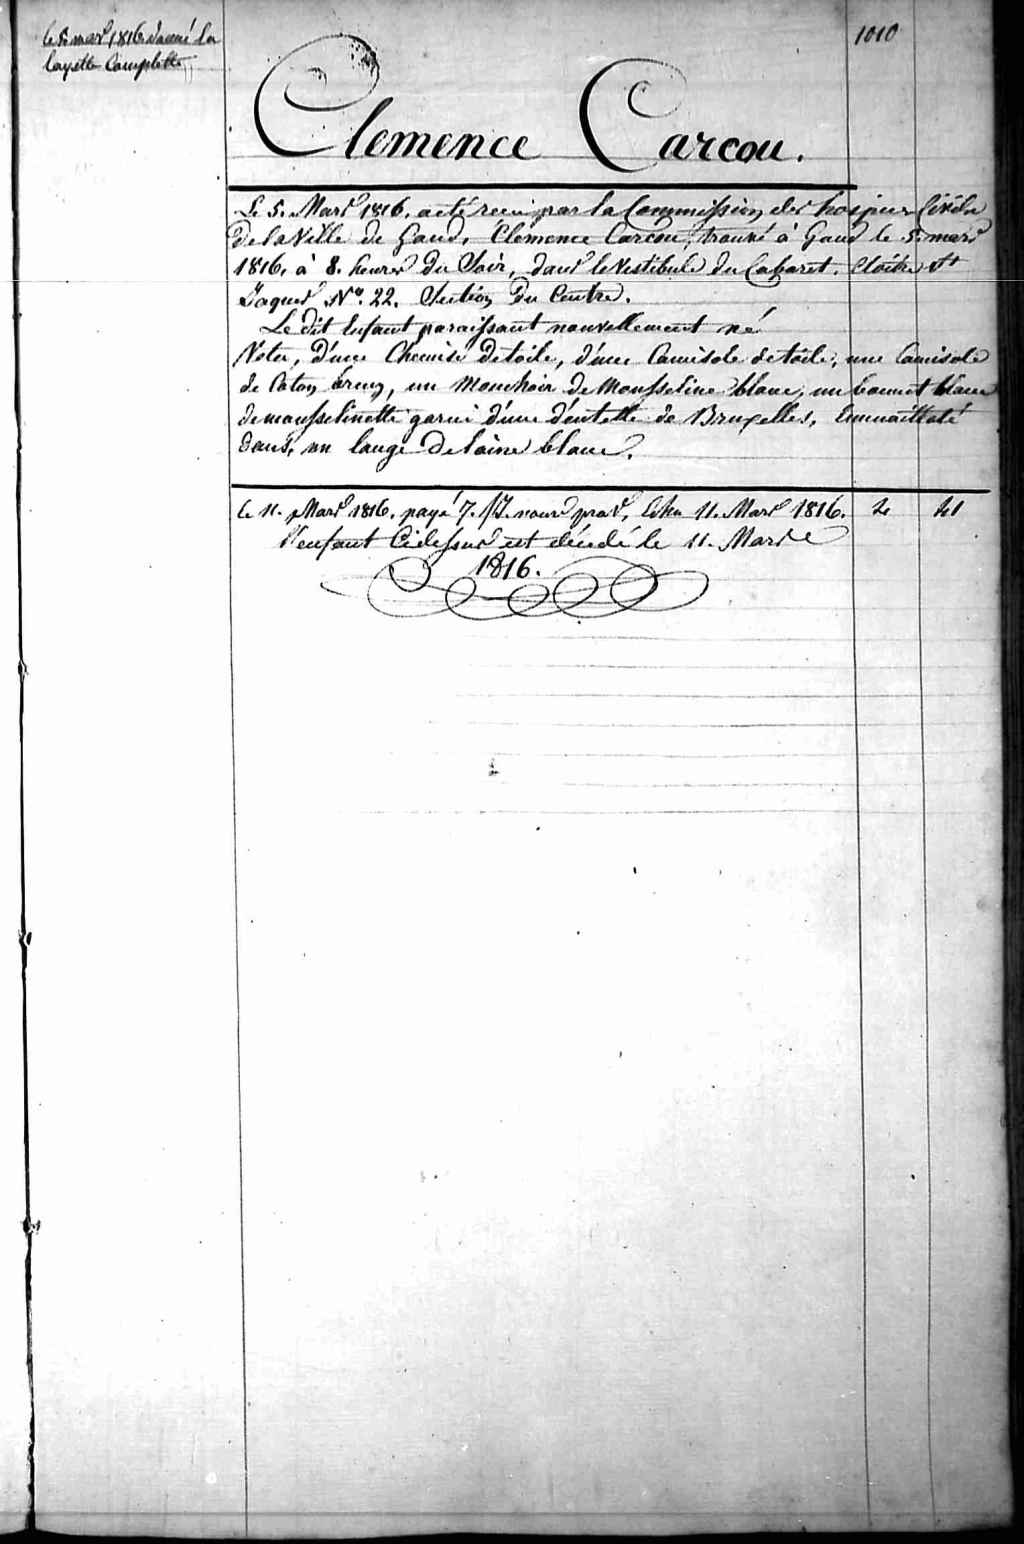 le 5 mars 1816 donné la
layette Complette
1010
Clemence Carcou.
Le 5. Mars 1816. a été reçu par la Commission des hospices Civils
de la Ville de Gand, Clemence Carcou, trouvé à Gand le 5. mars
1816, à 8. heures du Soir, dans le Vestibule du Cabaret. Cloître St
Jaques No. 22. Section du Centre.
Le dit Enfant paraissant nouvellement né
Vetu, d'une Chemise de toile, d'une Camisole de toile, une Camisole
de Coton, un Mouchoir de Mousseline blanc, un bonnet blanc
de mousselinette garni d'une dentelle de Bruxelles, Emmailloté
dans, un lange de laine blanc.
le 11. Mars 1816. payé 7. Echu 11. Mars 1816. 2 41
L'enfant Cidessus est décédé le 11. Mars
1816.